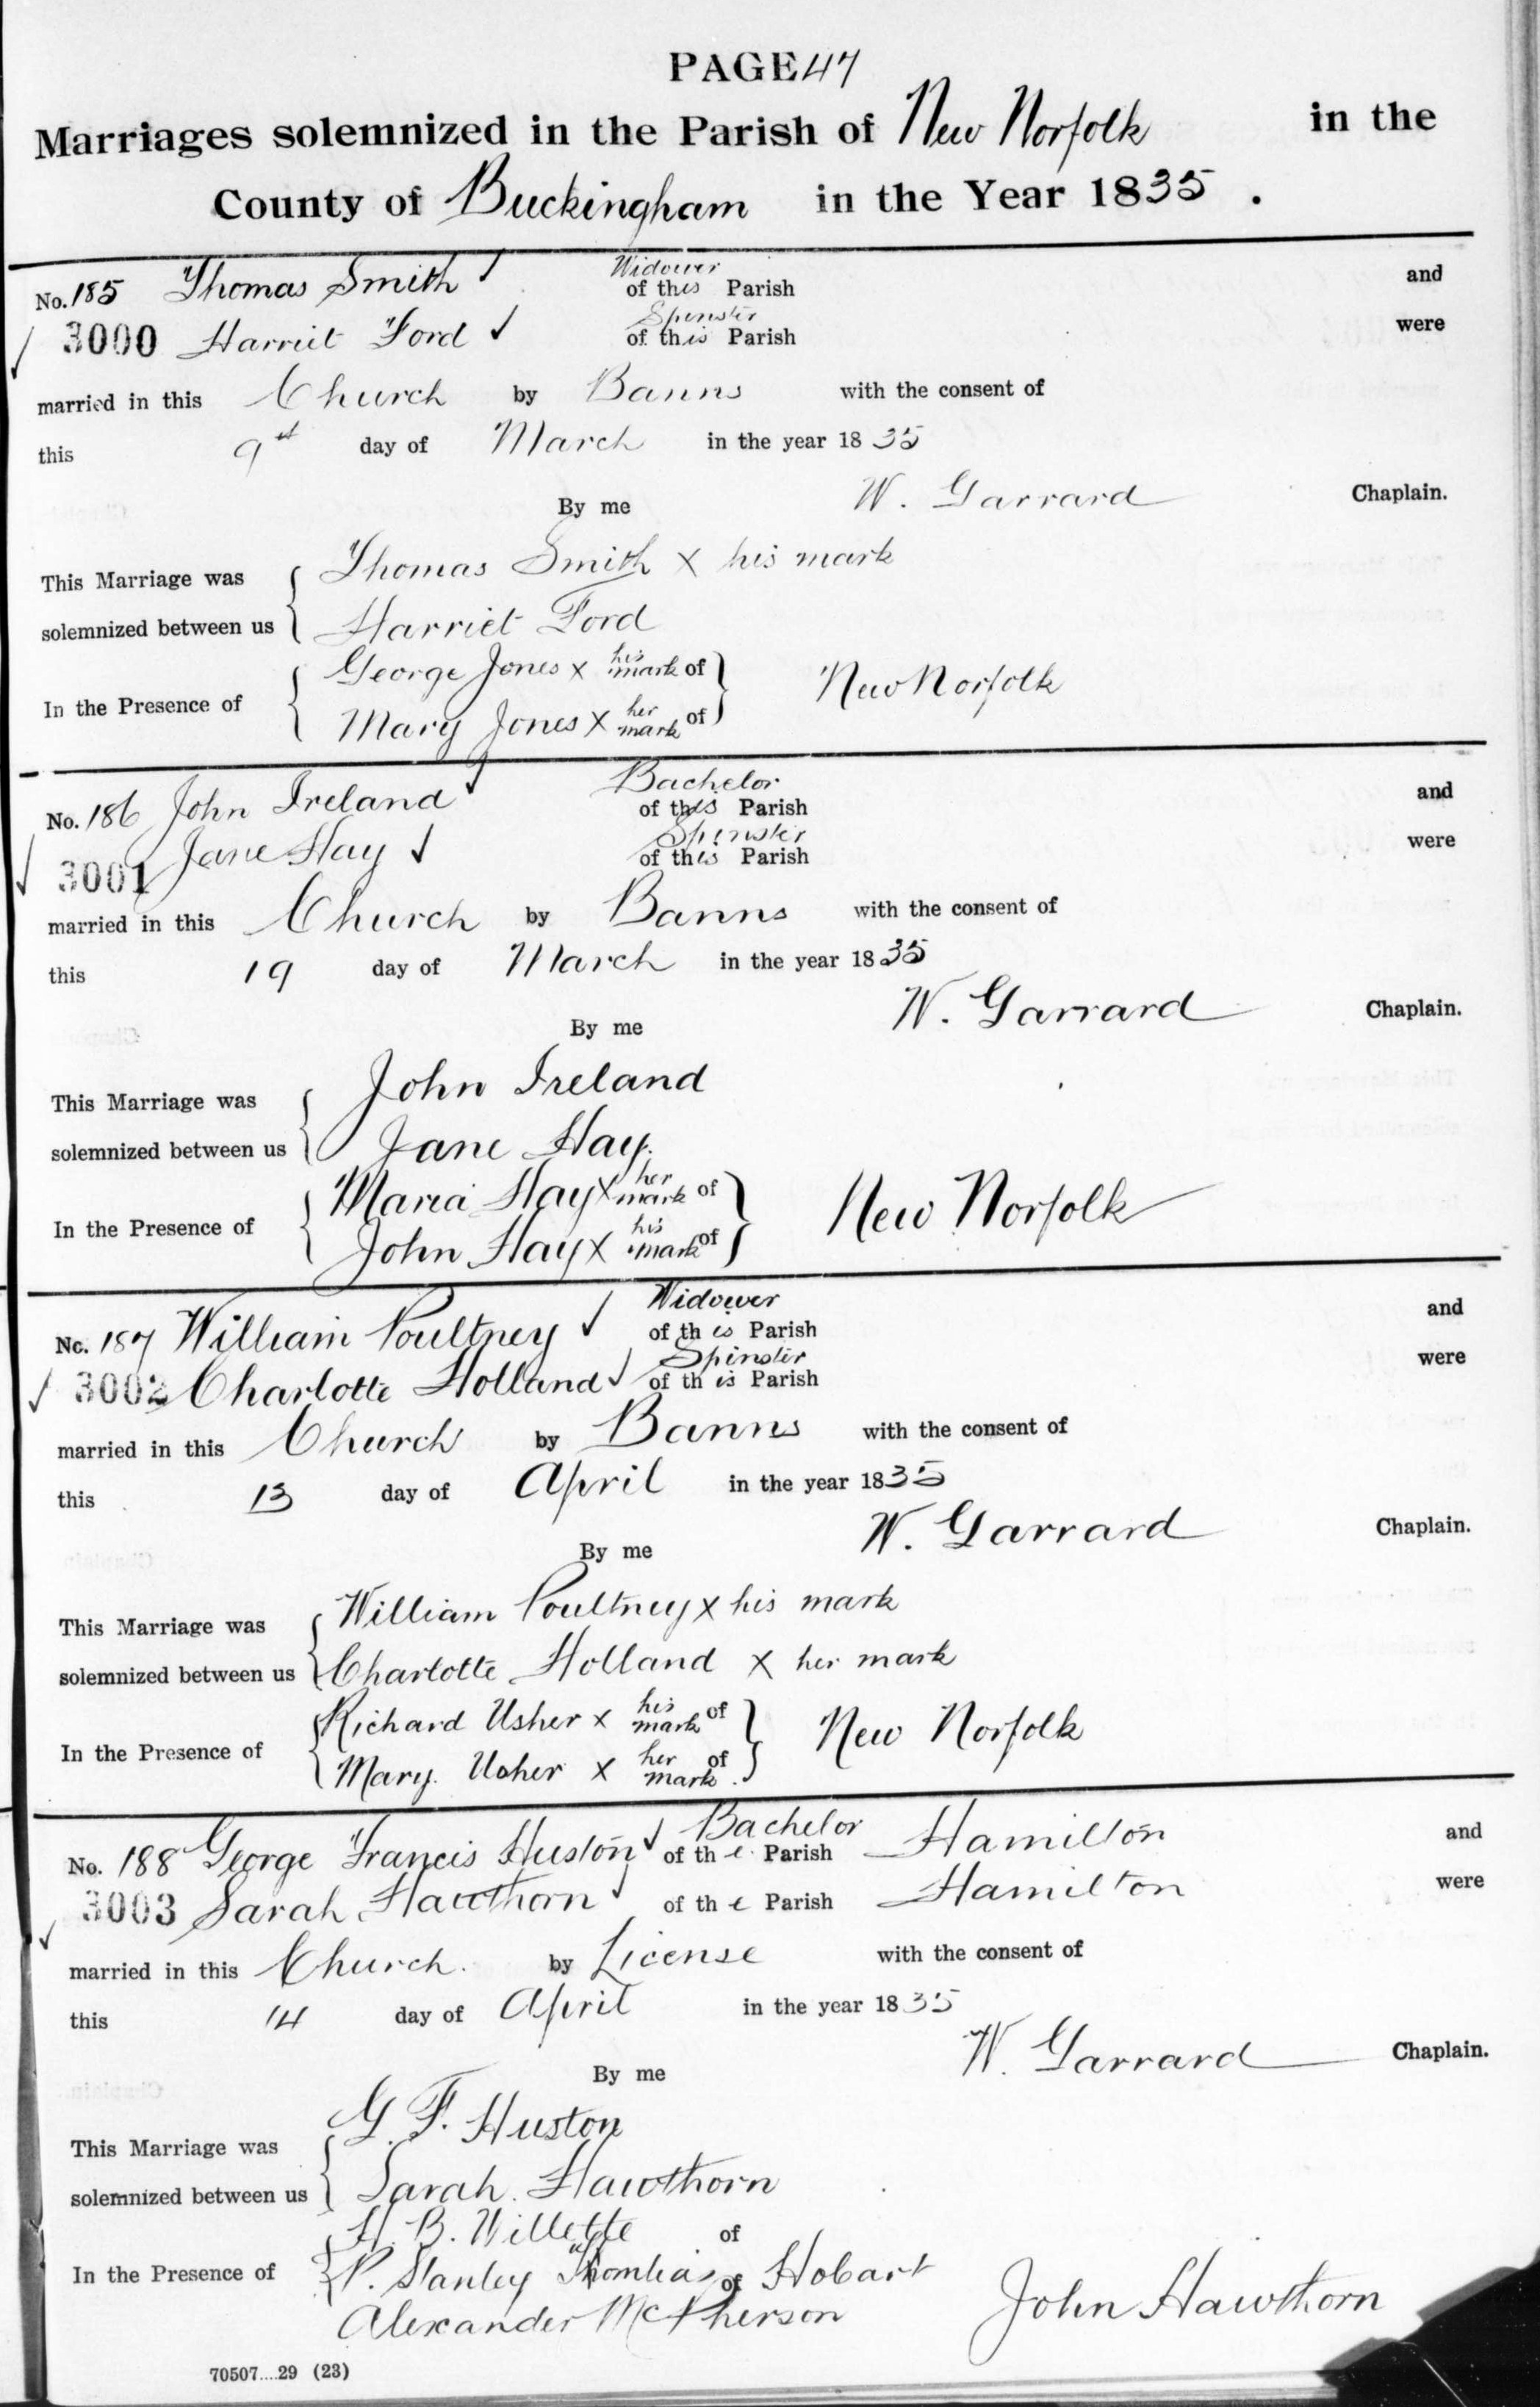 PAGE 47
Marriages solemnized in the Parish of New Norfolk in the
County of Buckingham in the Year 1835.
Widower
No. 185 Thomas Smith of this Parish and
Spinster
3000 Harriet Ford of this Parish were
married in this Church by Banns with the consent of
this 9th day of March in the year 1835
By me W. Garrard Chaplain.
This Marriage was Thomas Smith x his mark
solemnized between us Harriet Ford
George Jones x his mark of
In the Presence of New Norfolk
Mary Jones x her mark of
Bachelor
No. 186 John Ireland of this Parish and
Spinster
3001 Jane Hay of this Parish were
married in this Church by Banns with the consent of
this 19 day of March in the year 1835
By me W. Garrard Chaplain.
This Marriage was John Ireland
solemnized between us Jane Hay.
Maria Hay x her mark of
In the Presence of New Norfolk
John Hay x his mark of
Widower
No. 187 William Poultney of this Parish and
Spinster
3002 Charlotte Holland of this Parish were
married in this Church by Banns with the consent of
this 13 day of April in the year 1835
By me W. Garrard Chaplain.
This Marriage was William Poultney x his mark
solemnized between us Charlotte Holland x her mark
Richard Usher x his mark of
In the Presence of New Norfolk
Mary Usher x her mark of
Bachelor
No. 188 George Francis Huston of the Parish Hamilton and
3003 Sarah Hawthorn of the Parish Hamilton were
married in this Church. by License with the consent of
this 14 day of April in the year 1835
By me W. Garrard Chaplain.
This Marriage was G. F. Huston
solemnized between us Sarah Hawthorn
B. Willette of
In the Presence of P. Stanley of Hobart
Alexander McPherson John Hawthorn
70507....29 (23)